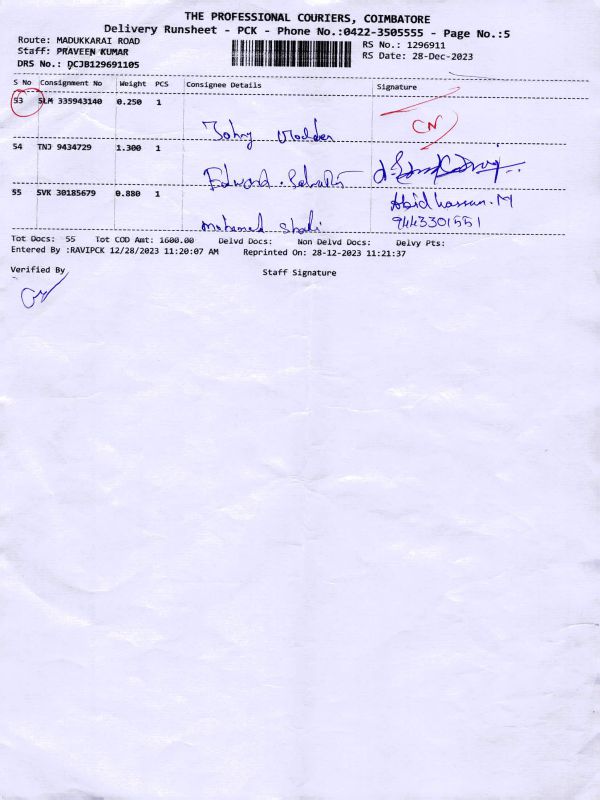 THE PROFESSIONAL COURIERS, COIMBATORE
Delivery Runsheet - PCK - Phone No.:0422-3505555 - Page No.:5
Route: MADUKKARAI ROAD
Staff: PRAVEEN KUMAR
DRS No.: DCJB129691105
RS No.: 1296911
RS Date: 28-Dec-2023
S No Consignment No Weight PCS Consignee Details Signature
53 SLM 335943140 0.250 1
CN
54 TNJ 9434729 1.300 1
Edward
55 SVK 30185679 0.880 1
Abid hassan.M
9443301551
Mohamed
Tot Docs: 55 Tot COD Amt: 1600.00 Delvd Docs: Non Delvd Docs: Delvy Pts:
Entered By :RAVIPCK 12/28/2023 11:20:07 AM Reprinted On: 28-12-2023 11:21:37
Verified By
Staff Signature